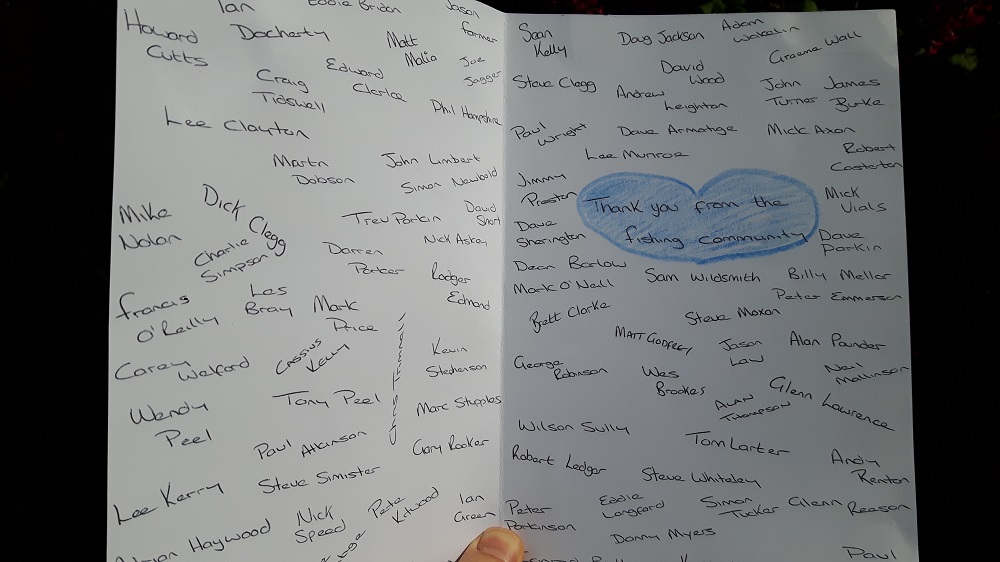 Ian
Eddie Bridon
Jason
Farmer
Howard
Cutts
Docherty
Matt
Malia
Joe
Jagger
Craig
Tidswell
Edward
Clarke
Phil Hampshire
Lee Clayton
Martin
Dobson
John Limbert
Simon Newbold
Mike
Nolan
Dick Clegg
Charlie
Simpson
Trev Parkin
David
Short
Nick Askey
Darren
Parker
Rodger
Edmond
Francis
O'Reilly
Les
Bray
Mark
Price
Carey
Welford
Cassius
Kelly
Kevin
Stephenson
Wendy
Peel
Tony Peel
Marc Stupples
Paul Atkinson
Gary Rooker
Lee Kerry
Steve Simister
Haywood
Nick
Speed
Pete
Ian
Green
Sean
Kelly
Doug Jackson
Adam
Wakelin
Graeme Wall
Steve Clegg
David
Wood
Andrew
Leighton
John
Turner
James
Burke
Paul
Wright
Dave Armatige
Mick Axon
Lee Munroe
Robert
Costerton
Jimmy
Preston
Thank you from the
fishing community
Mick
Vials
Dave
Sherington
Dave
Parkin
Dean Barlow
Mark O'Neill
Sam Wildsmith
Billy Mellor
Peter Emmerson
Brett Clarke
Steve Moxon
Matt Godfrey
Jason
Law
Alan Pounder
George
Robinson
Wes
Brookes
Neil
Mallinson
Alan
Thompson
Glenn Lawrence
Wilson Sully
Tom Larter
Andy
Renton
Robert Ledger
Steve Whiteley
Peter
Parkinson
Eddie
Longford
Simon
Tucker
Glenn Reason
Danny Myers
Paul